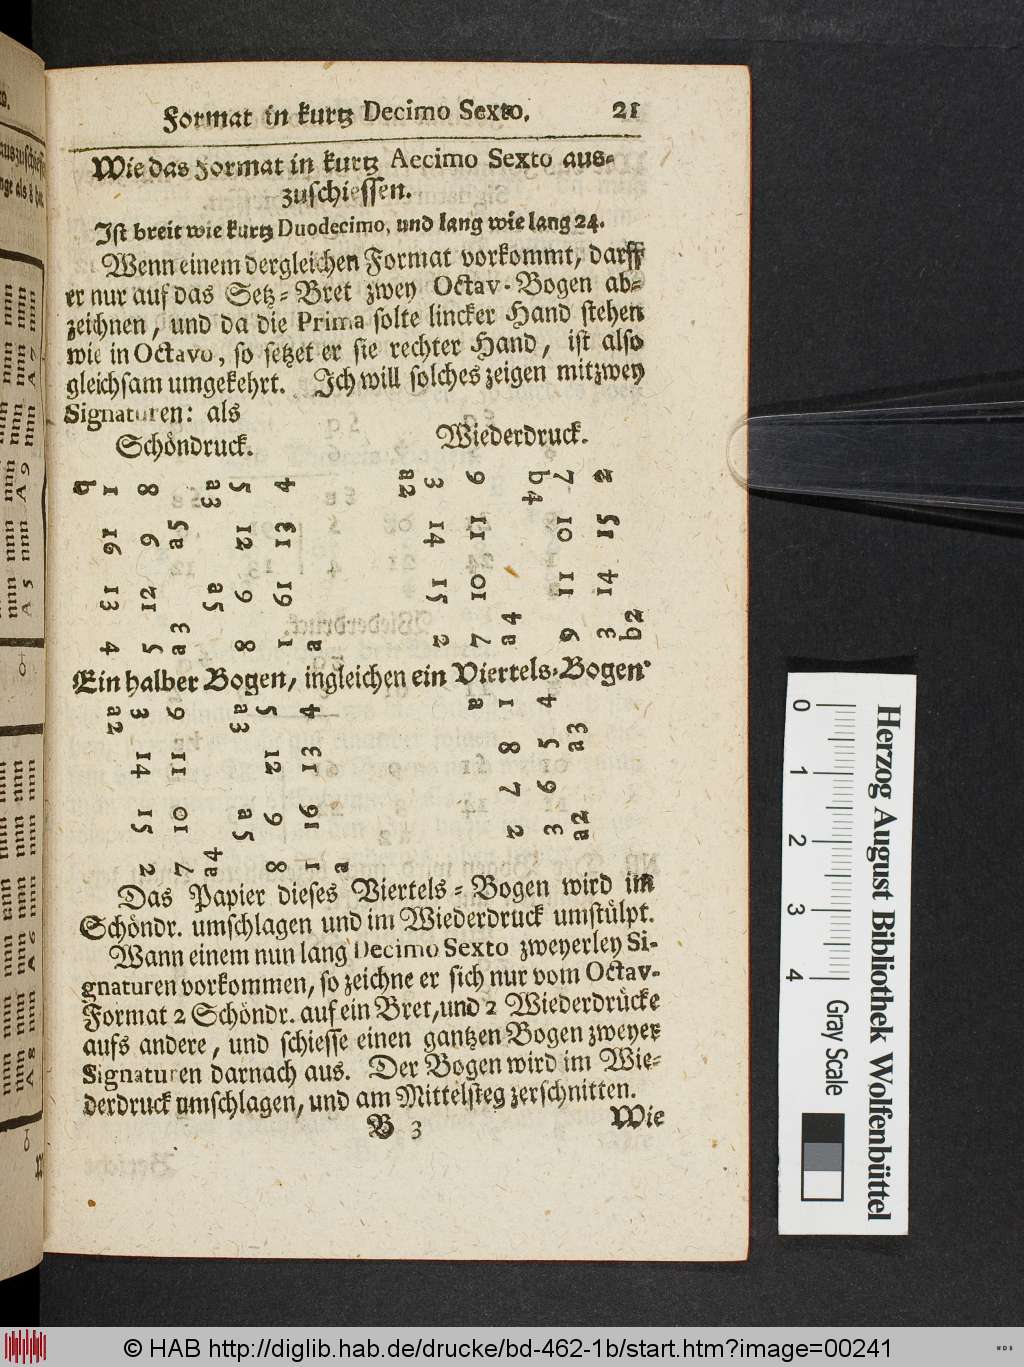 Format in kurtz Decimo Sexto. 21
Wie das Format in kurtz Aecimo Sexto aus-
zuschiessen.
Ist breit wie kurtz Duodecimo, und lang wie lang 24.
Wenn einem dergleichen Format vorkommt, darff
er nur auf das Setz-Bret zwey Octav-Bogen ab-
zeichnen, und da die Prima solte lincker Hand stehen
wie in Octavo, so setzet er sie rechter Hand, ist also
gleichsam umgekehrt. Ich will solches zeigen mit zwey
Signaturen: als
Schöndruck. Wiederdruck.
b 1 8 a3 5 4 a2 3 9 b4 7 2
16 9 a5 12 13 14 11 10 15
13 12 a5 9 19 15 10 11 14
4 5 a3 8 1 a 2 7 a4 6 3 b2
Ein halber Bogen, ingleichen ein Viertels-Bogen.
a2 3 6 a3 5 4 a 1 4
14 11 12 13 8 5 a3
15 10 a5 9 16 7 6
2 7 a4 8 1 a 2 3 a2
Das Papier dieses Viertels-Bogen wird im
Schöndr. umschlagen und im Wiederdruck umstülpt.
Wann einem nun lang Decimo Sexto zweyerley Si-
gnaturen vorkommen, so zeichne er sich nur vom Octav-
Format 2 Schöndr. auf ein Bret, und 2 Wiederdrücke
aufs andere, und schiesse einen gantzen Bogen zweyer
Signaturen darnach aus. Der Bogen wird im Wie-
derdruck umschlagen, und am Mittelsteg zerschnitten.
B 3 Wie
0 1 2 3 4
Gray Scale
Herzog August Bibliothek Wolfenbüttel
© HAB http://diglib.hab.de/drucke/bd-462-1b/start.htm?image=00241